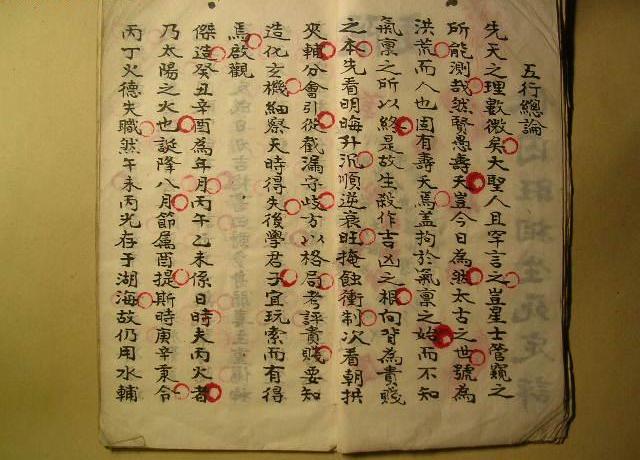 五行總論
先天之理數微矣大聖人且罕言之豈星士管窺之
所能測哉然賢愚壽夭豈今日為然太古之世號為
洪荒而人也固有壽夭焉蓋拘於氣稟之始而不知
氣稟之所以終是故生殺作吉凶之根向背為貴賤
之本先看明晦升沉順逆衰旺掩蝕衝制次看朝拱
夾輔分會引從截漏守歧方以格局考評貴賤要知
造化玄機細察天時得失後學君子宜玩索而有得
焉啟觀
傑造癸丑辛酉為年月丙午乙未係日時夫丙火者
乃太陽之火也誕降八月節屬酉提斯時庚辛秉令
丙丁火德失職然午未丙光存于湖海故仍用水輔